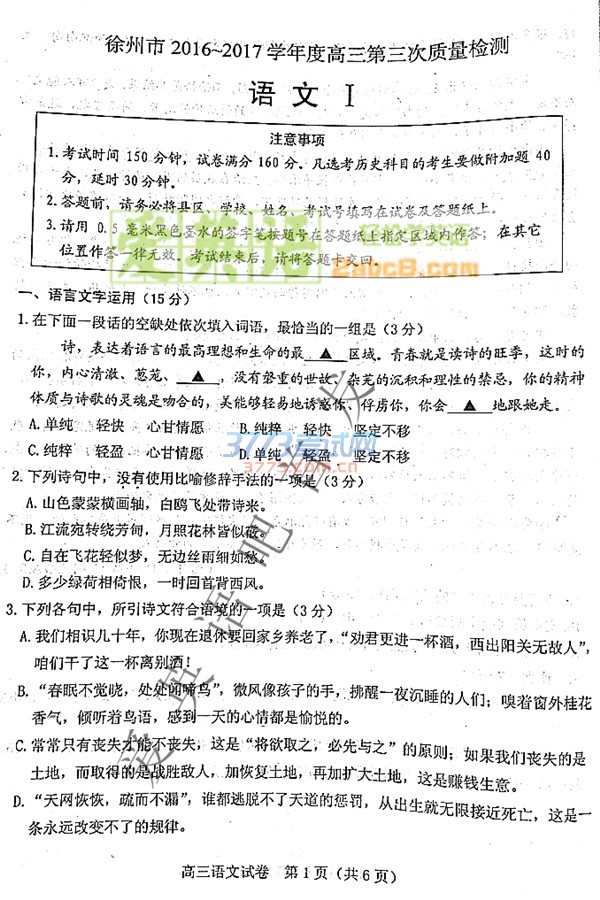 徐州市 2016~2017 学年度高三第三次质量检测
语 文 Ⅰ
注意事项
1.考试时间 150 分钟，试卷满分 160 分。凡选考历史科目的考生要做附加题 40
分，延时 30 分钟。
2.答题前，请务必将县区、学校、姓名、考试号填写在试卷及答题纸上。
3.请用 0.5 毫米黑色墨水的签字笔按题号在答题纸上指定区域内作答；在其它
位置作答一律无效。考试结束后，请将答题卡交回。
爱英语吧
2abc8.com
一、语言文字运用（15 分）
1.在下面一段话的空缺处依次填入词语，最恰当的一组是（3 分）
诗，表达着语言的最高理想和生命的最 ▲ 区域。青春就是读诗的旺季，这时的
你，内心清澈、葱茏、 ▲ ，没有磐重的世故、杂芜的沉积和理性的禁忌，你的精神
体质与诗歌的灵魂是吻合的，美能够轻易地诱惑你、俘虏你，你会 ▲ 地跟她走。
A.单纯 轻快 心甘情愿 B.纯粹 轻快 坚定不移
C.纯粹 轻盈 心甘情愿 D.单纯 轻盈 坚定不移
3773考试网
3773.com.cn
2.下列诗句中，没有使用比喻修辞手法的一项是（3 分）
A.山色蒙蒙横画轴，白鸥飞处带诗来。
B.江流宛转绕芳甸，月照花林皆似霰。
C.自在飞花轻似梦，无边丝雨细如愁。
D.多少绿荷相倚恨，一时回首背西风。
3.下列各句中，所引诗文符合语境的一项是（3 分）
A.我们相识几十年，你现在退休要回家乡养老了，“劝君更进一杯酒，西出阳关无故人”，
咱们干了这一杯离别酒！
B.“春眠不觉晓，处处闻啼鸟”，微风像孩子的手，拂醒一夜沉睡的人们；嗅着窗外桂花
香气，倾听着鸟语，感到一天的心情都是愉悦的。
C.常常只有丧失才能不丧失，这是“将欲取之，必先与之”的原则；如果我们丧失的是
土地，而取得的是战胜敌人，加恢复土地，再加扩大土地，这是赚钱生意。
D.“天网恢恢，疏而不漏”，谁都逃脱不了天道的惩罚，从出生就无限接近死亡，这是一
条永远改变不了的规律。
爱英语吧首发
高三语文试卷 第 1 页（共 6 页）